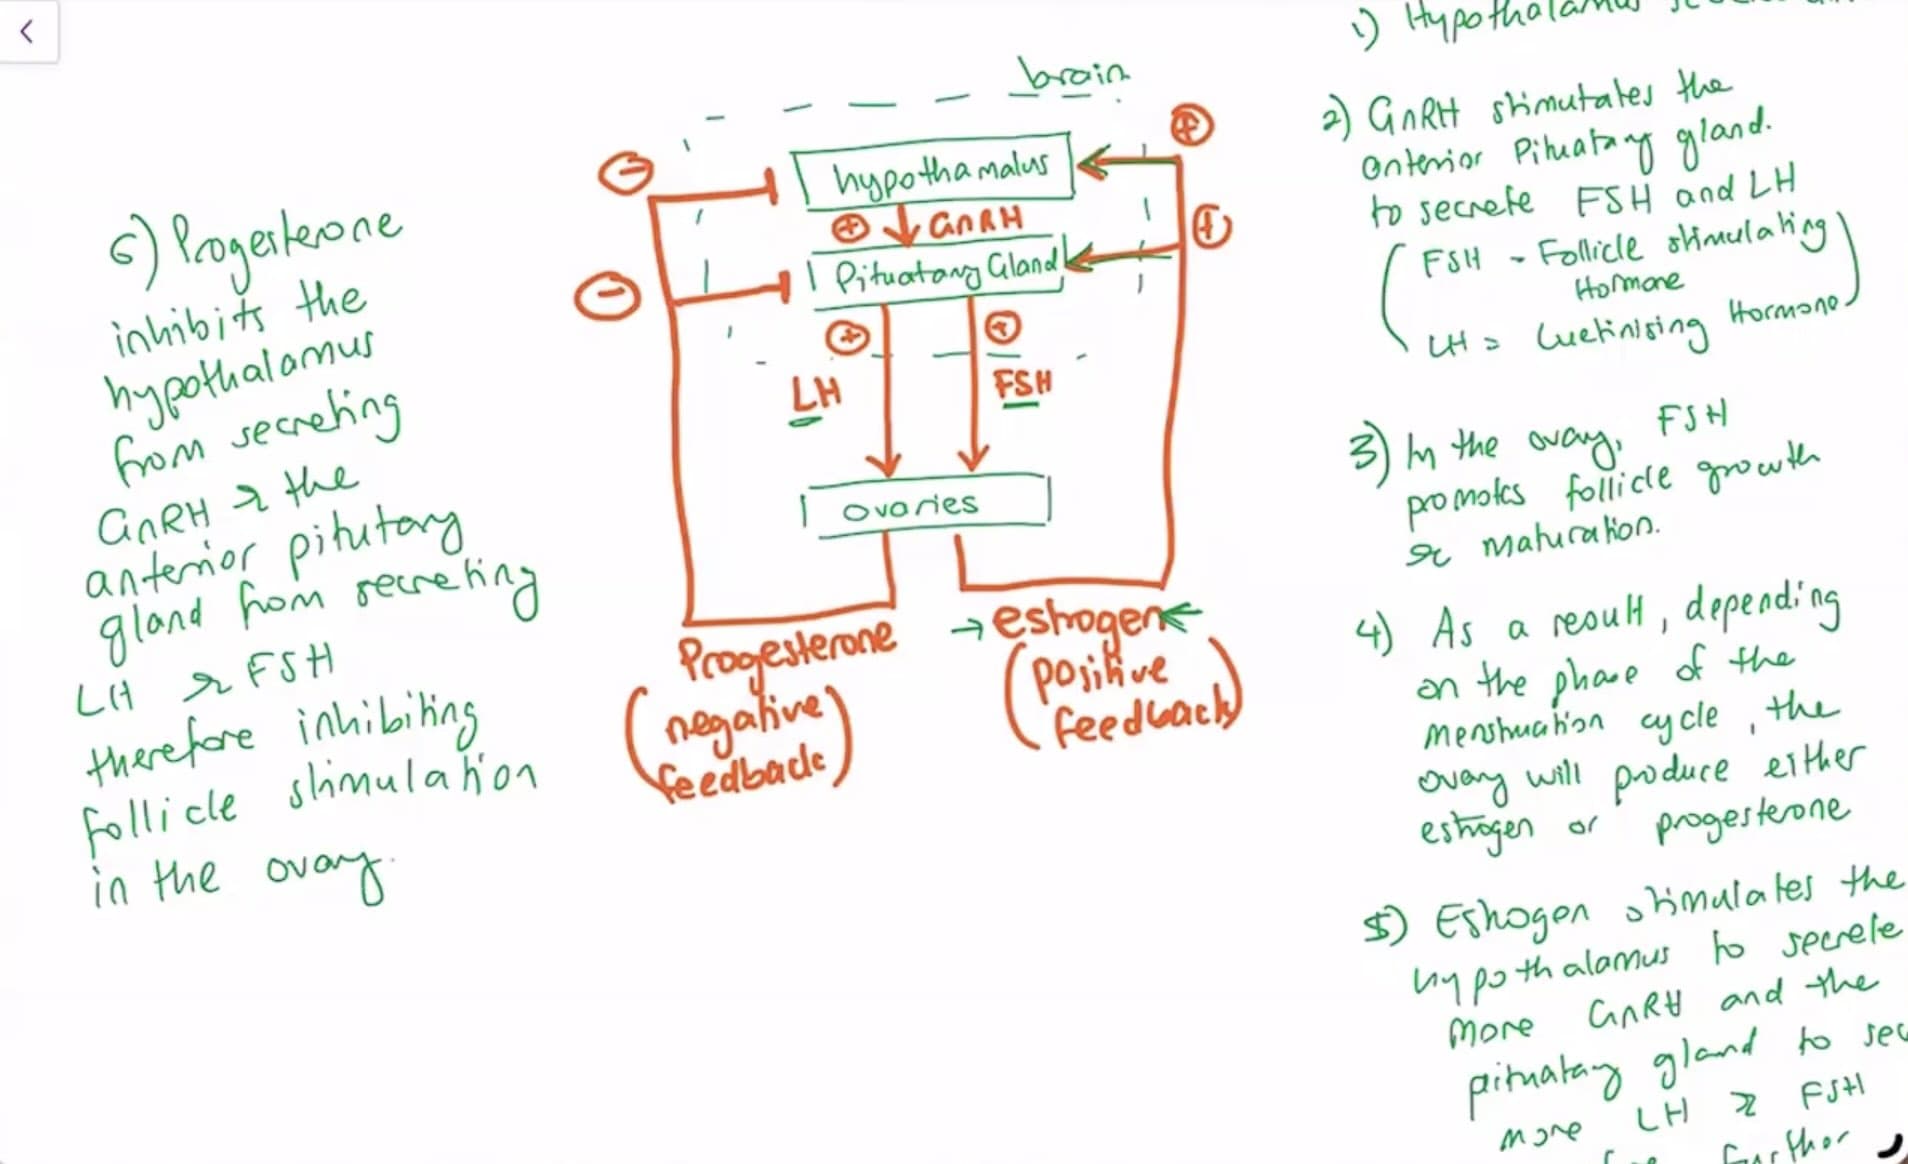 brain
hypothamalus
GnRH
Pituatary Gland
LH
FSH
ovaries
Progesterone
(negative
feedback)
→ estrogen
(positive
feedback)
1) Hypothalamus
2) GnRH stimutates the
anterior Pituatary gland.
to secrete FSH and LH
(FSH - Follicle stimulating
Hormone
LH = Luetinising Hormone)
3) In the ovary, FSH
promotes follicle growth
& maturation.
4) As a result, depending
on the phase of the
menstruation cycle, the
ovary will produce either
estrogen or progesterone
5) Estrogen stimulates the
hypothalamus to secrete
more GnRH and the
pituatary gland to sec
more LH & FSH
further
6) Progesterone
inhibits the
hypothalamus
from secreting
GnRH & the
anterior pitutary
gland from secreting
LH & FSH
therefore inhibiting
follicle stimulation
in the ovary.